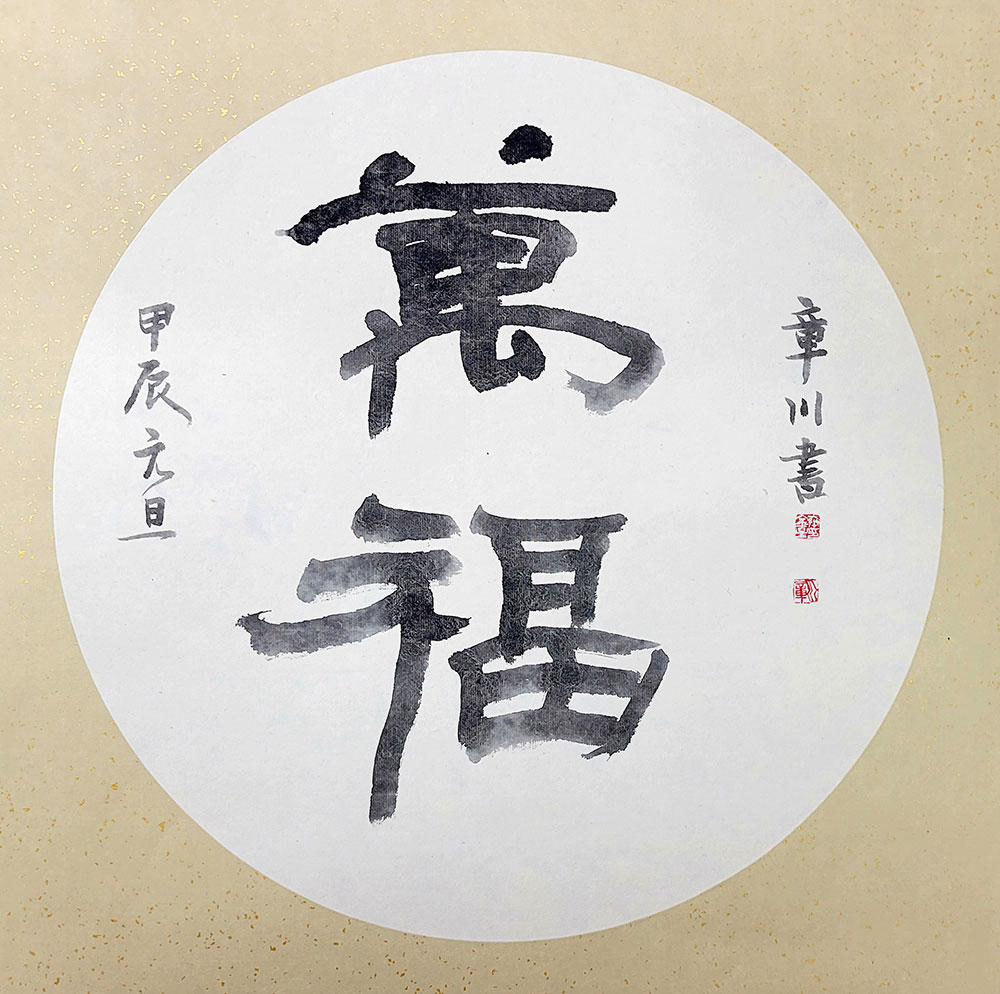 萬福
章川書
甲辰元旦